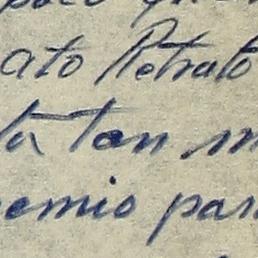 ato Retrato
ta tan m
emio par